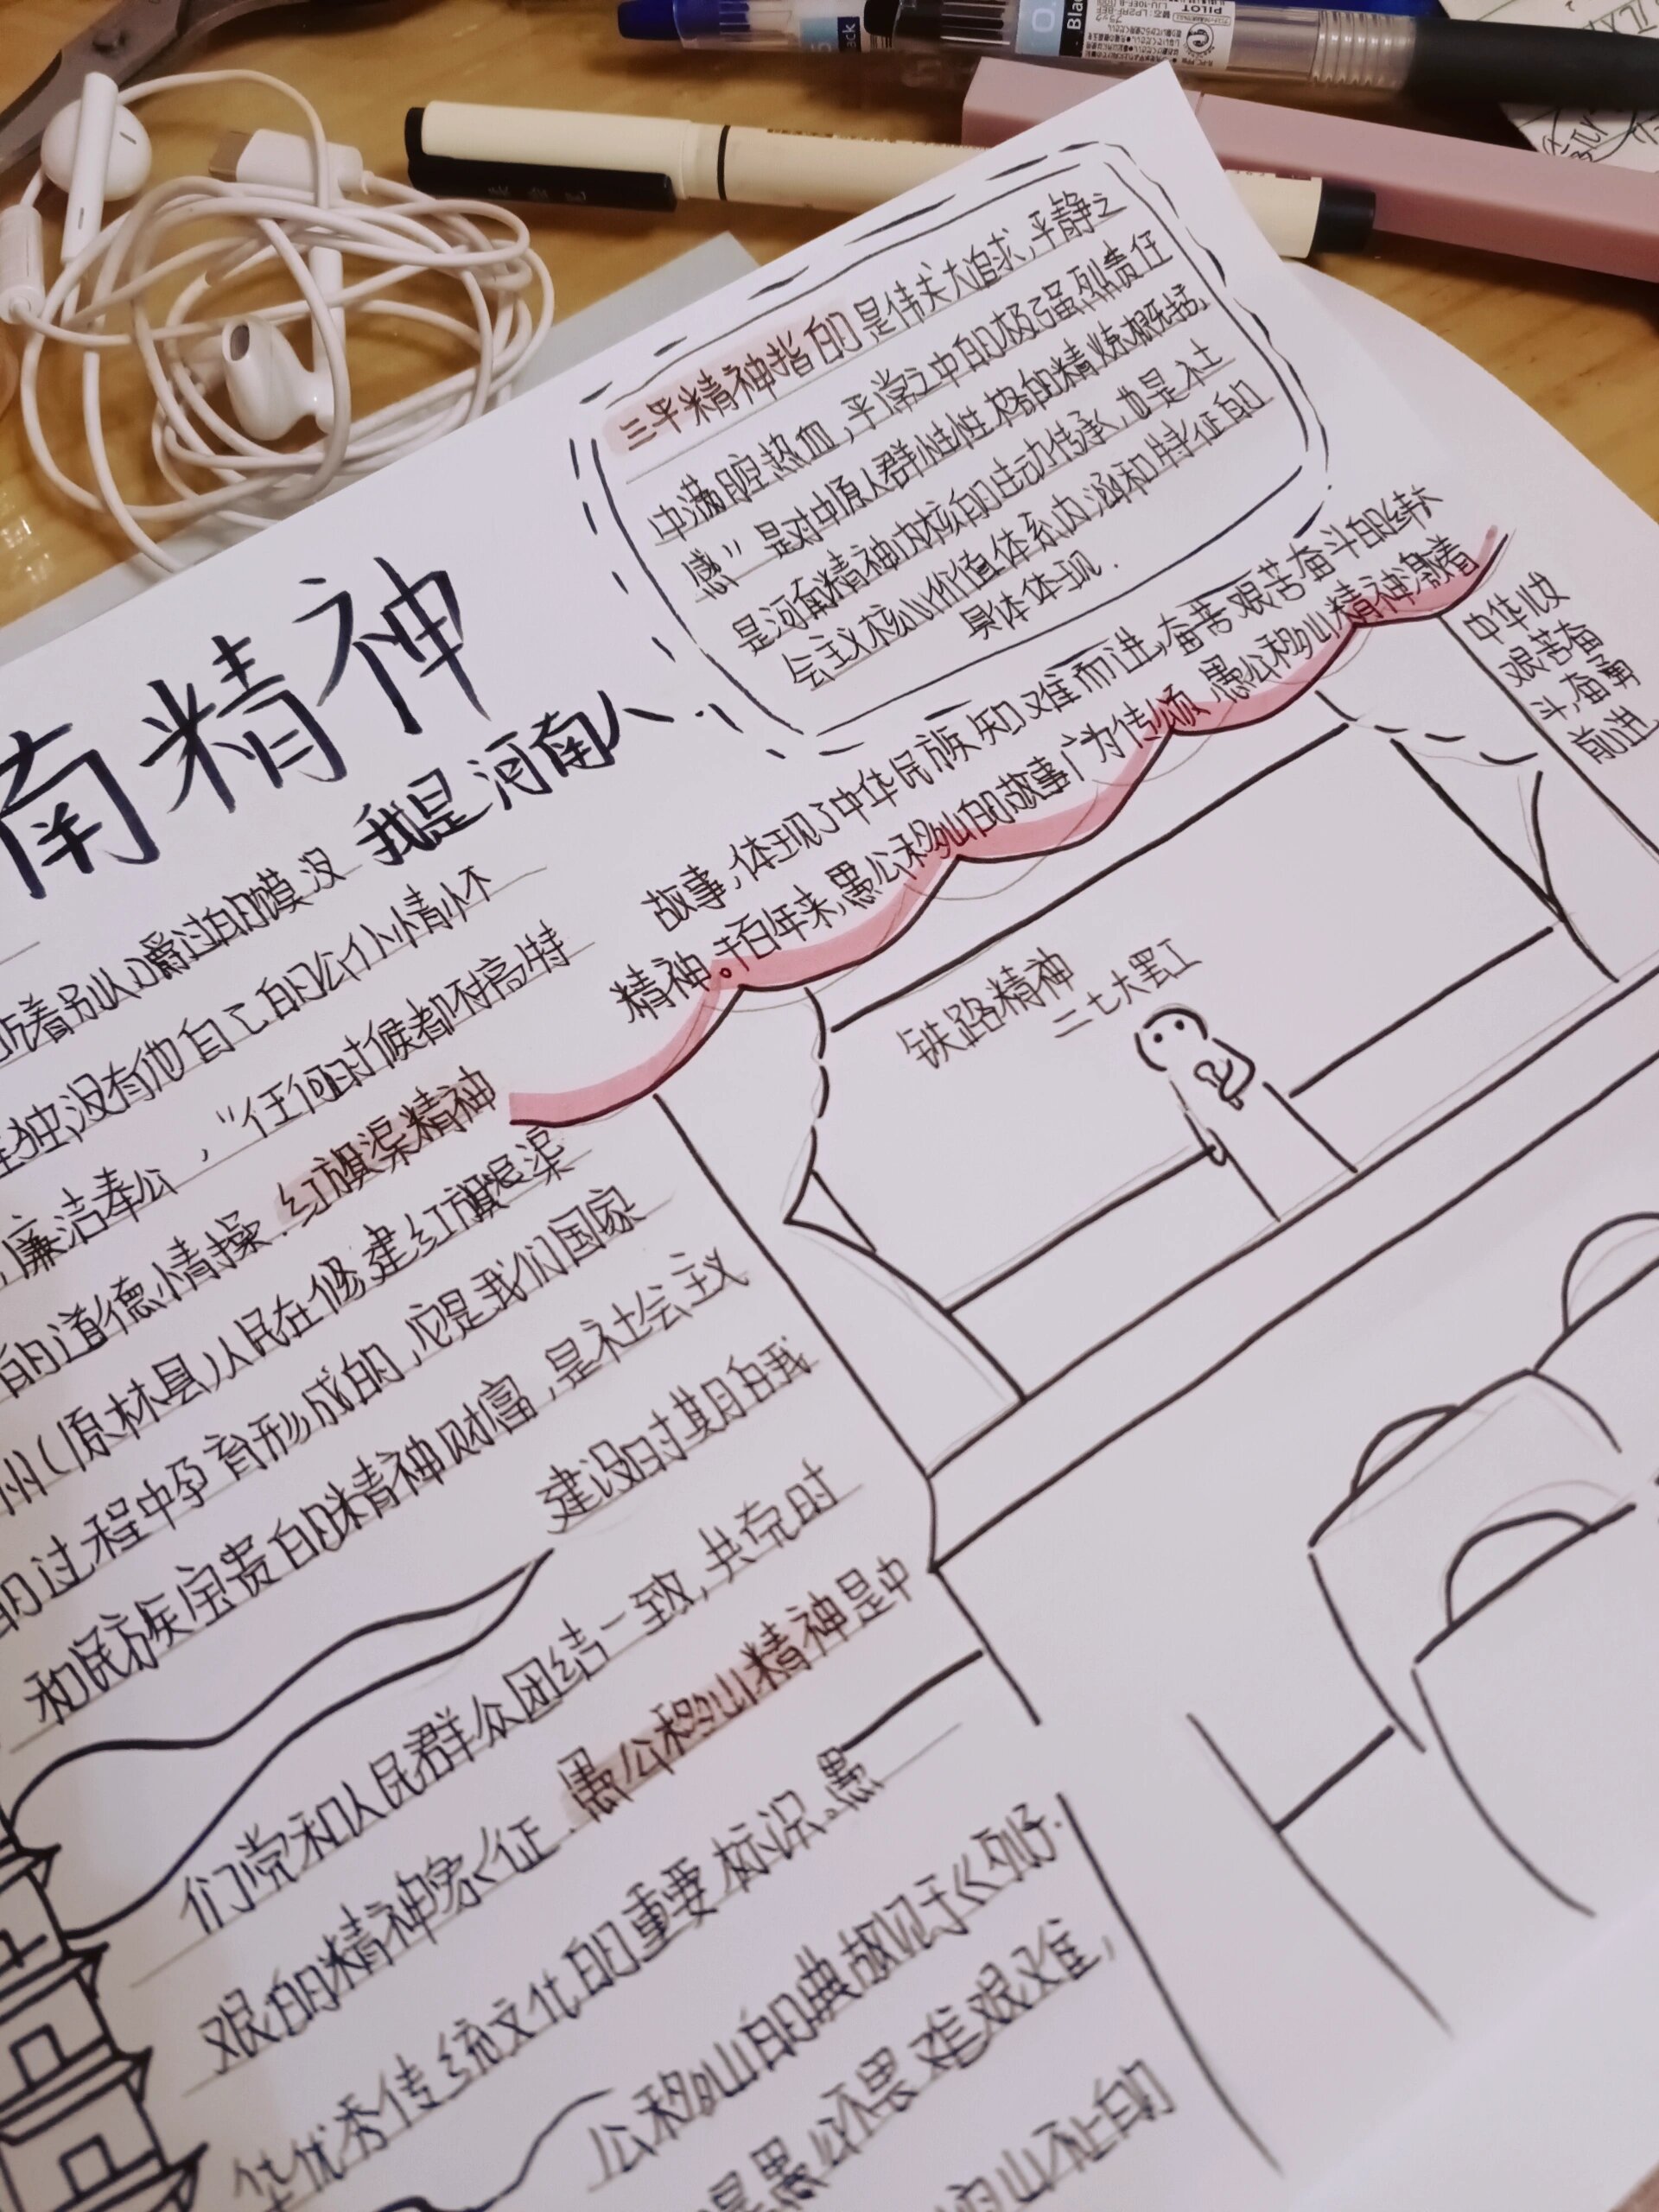 三平精神指的是伟大追求,平静之
中满腔热血,平常之中的极强烈责任
感”是对中原人群性性格的精炼概括,
是河南精神内核的生动传承,也是社
会主义核心价值体系内涵和特征的
具体体现.
南精神
我是河南人.
故事,体现了中华民族知难而进,奋苦艰苦奋斗的
精神。千百年来,愚公移山的故事广为传颂,愚公移山精神激着
中华儿女
艰苦奋
斗,奋勇
前进
铁路精神
二七大罢工
着别人嚼过的馍没
独,没有他自己的
廉洁奉公,“任何时候都不搞特
的道德情操.红旗渠精神
州(原林县)人民在修建红旗渠
的过程中孕育形成的,它是我们国家
和民族宝贵的精神财富,是社会主义
建设时期自我
们党和人民群众团结一致,共克时
艰的精神象征.愚公移山精神是中
华优秀传统文化的重要标识。愚
公移山的典故见于《列子.
是愚公不畏难艰难,
山不止的
Black
PILOT